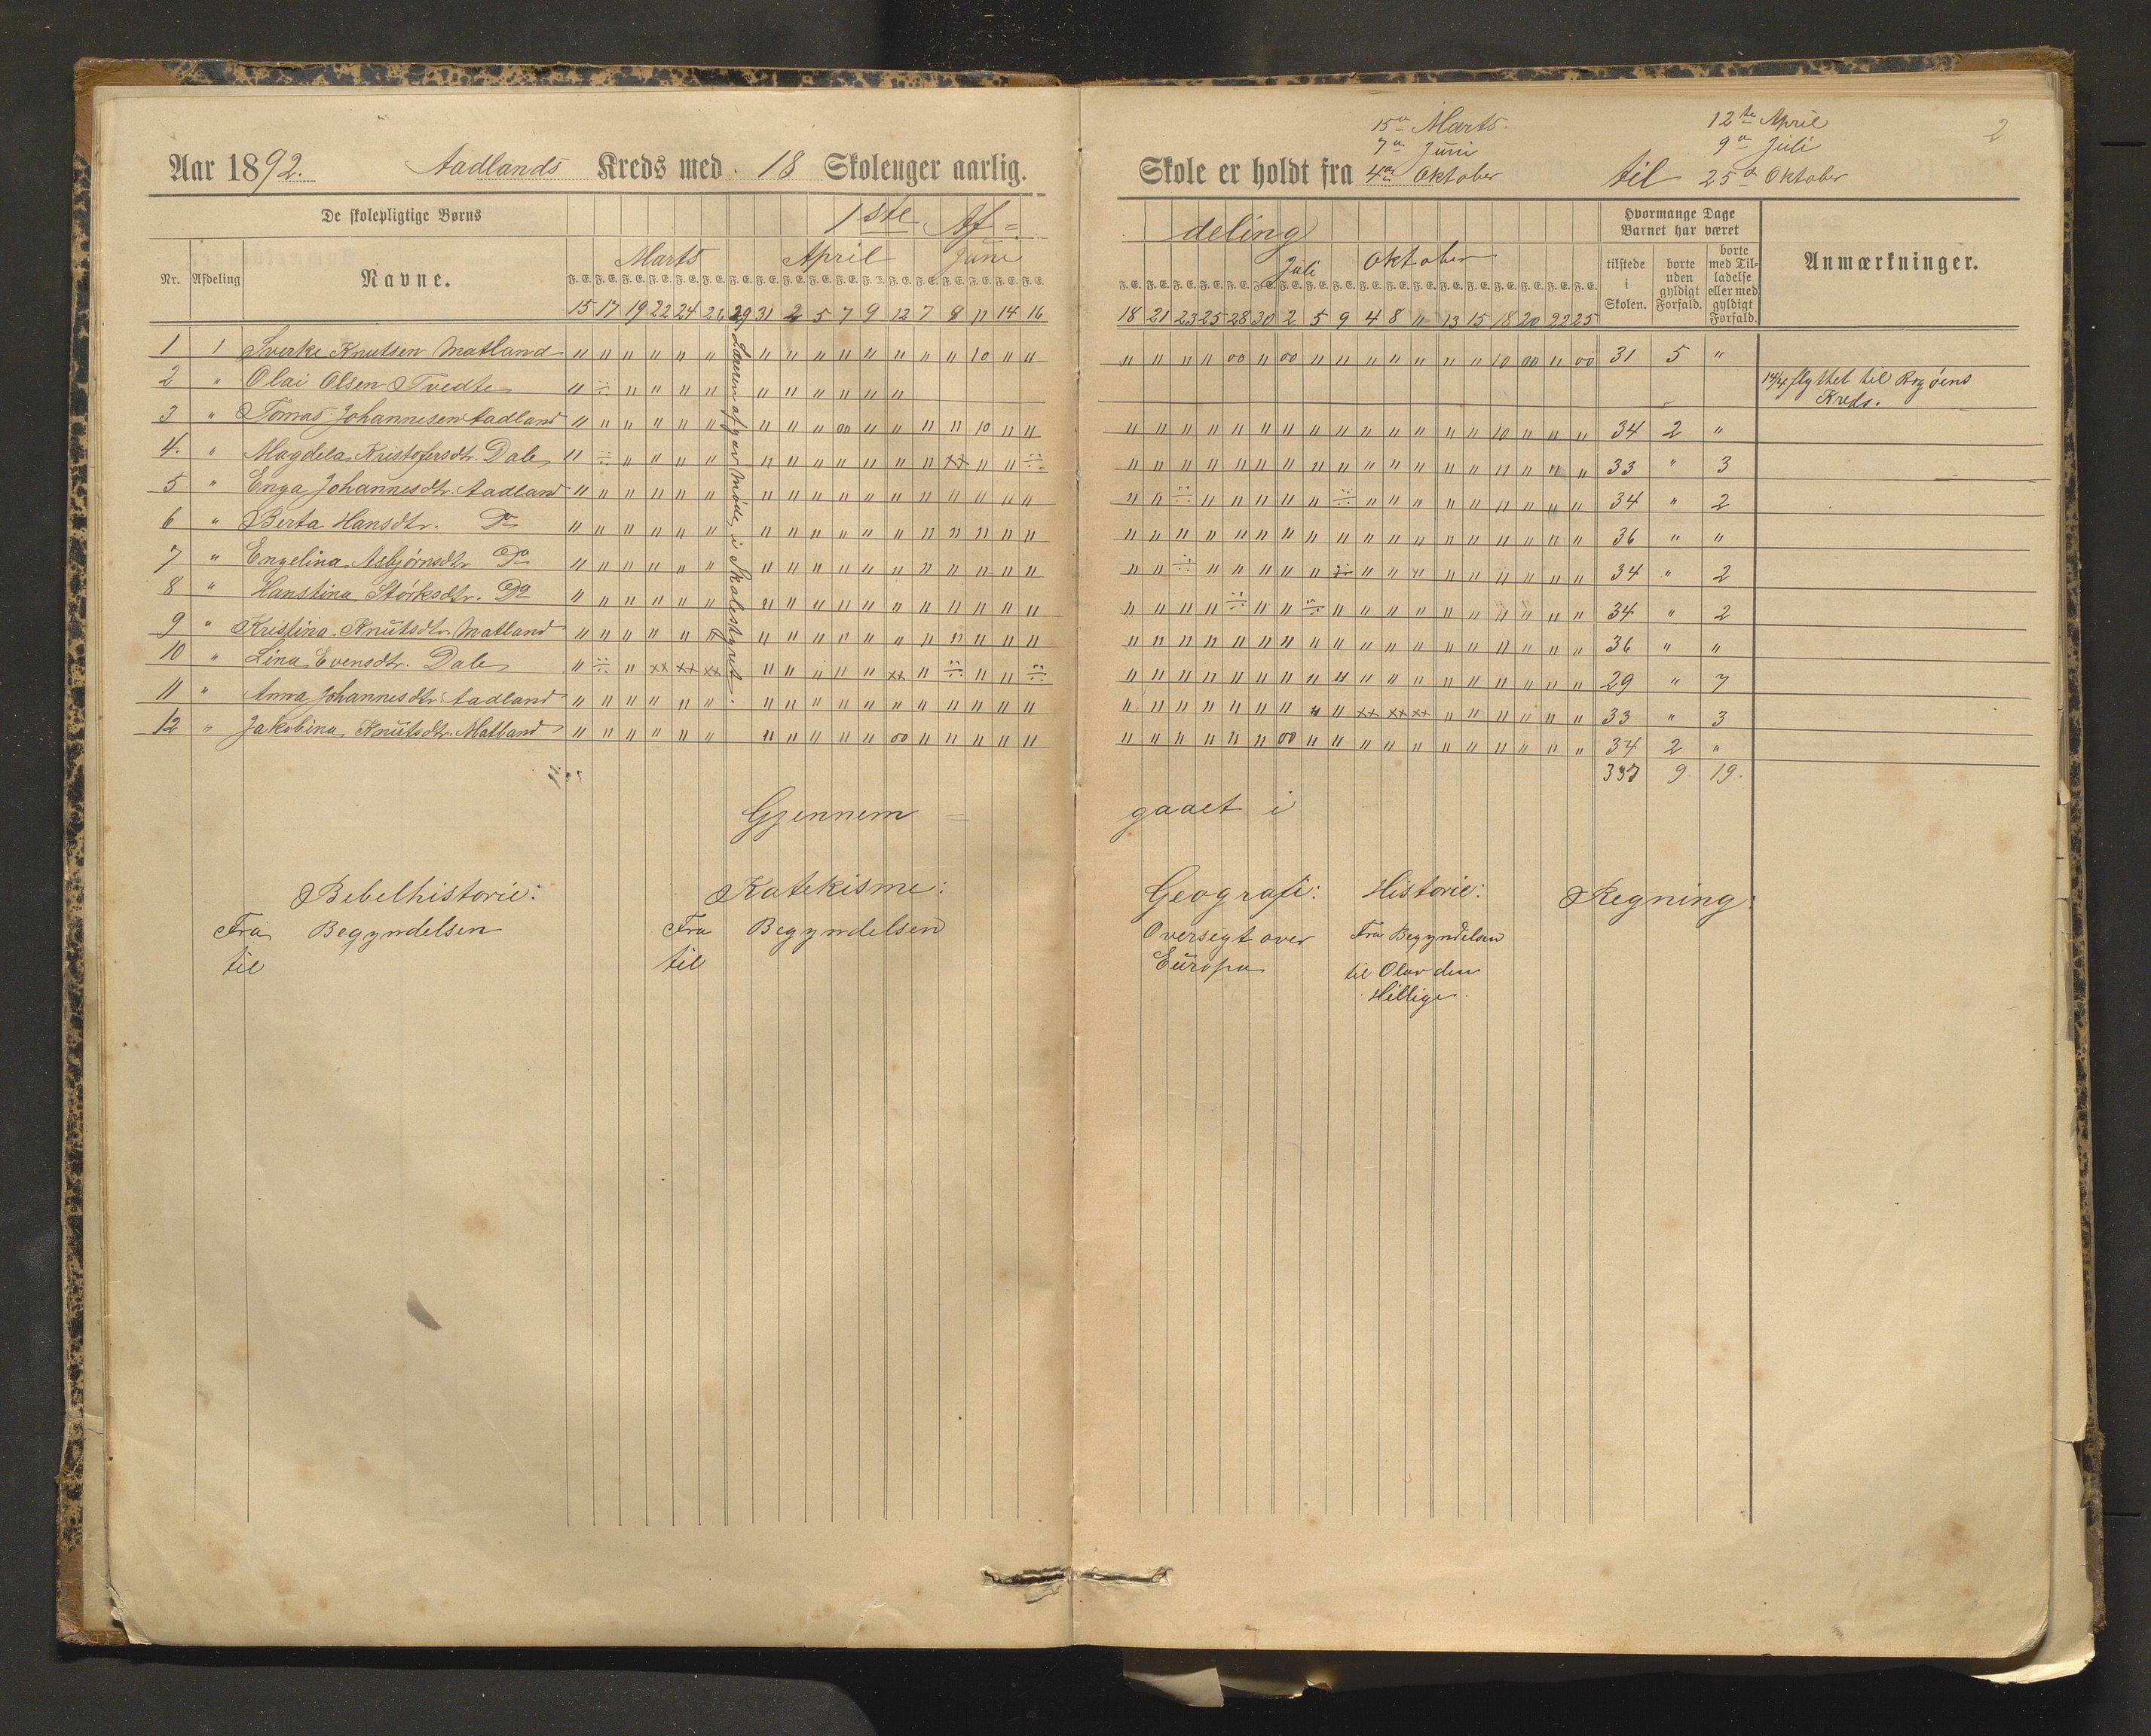 Aar 1892. Aadlands Kreds med 18 Skoleuger aarlig.
De skolepligtige Børns
1ste Af=
Marts April Juni
Nr. Afdeling Navne. F. E. F. E. F. E. F. E. F. E. F. E. F. E. F. E. F. E. F. E. F. E. F. E. F. E. F. E. F. E. F. E. F. E. F. E.
15 17 19 22 24 26 29 31 2 5 7 9 12 7 8 11 14 16
Læreren afgav Møde i Skolestyret.
1 1 Sverke Knutsen Matland
2 " Olai Olsen Tvedte
3 " Tomas Johannesen Aadland
4. " Magdela Kristofersdtr. Dale
5 " Enga Johannesdtr. Aadland
6 " Berta Hansdtr. Do
7 " Engelina Asbjørnsdtr Do
8 " Hanstina Størksdtr. Do
9 " Kristina Knutsdtr. Matland
10 " Lina Evensdtr. Dale
11 " Anna Johannesdtr. Aadland
12 " Jakobina Knutsdtr. Matland
Gjennem =
Bebelhistorie: Katekisme:
Fra Begyndelsen Fra Begyndelsen
til til
2
15de Marts. 12te April
7de Juni 9de Juli
Skole er holdt fra 4de Oktober til 25de Oktober
deling
Juli Oktober
F. E. F. E. F. E. F. E. F. E. F. E. F. E. F. E. F. E. F. E. F. E. F. E. F. E. F. E. F. E. F. E. F. E. F. E.
18 21 23 25 28 30 2 5 9 4 8 11 13 15 18 20 22 25
Hvormange Dage
Barnet har været
tilstede
i
Skolen.
borte
uden
gyldigt
Forfald.
borte
med Til-
ladelse
eller med
gyldigt
Forfald.
Anmærkninger.
31 5 "
14/4 flyttet til Røgøens
Kreds.
34 2 "
33 " 3
34 " 2
36 " "
34 " 2
34 " 2
36 " "
29 " 7
33 " 3
34 2 "
337 9 19.
gaaet i
Geografi: Historie: Regning:
Oversigt over Fra Begyndelsen
Europa til Olav den
Hellige.